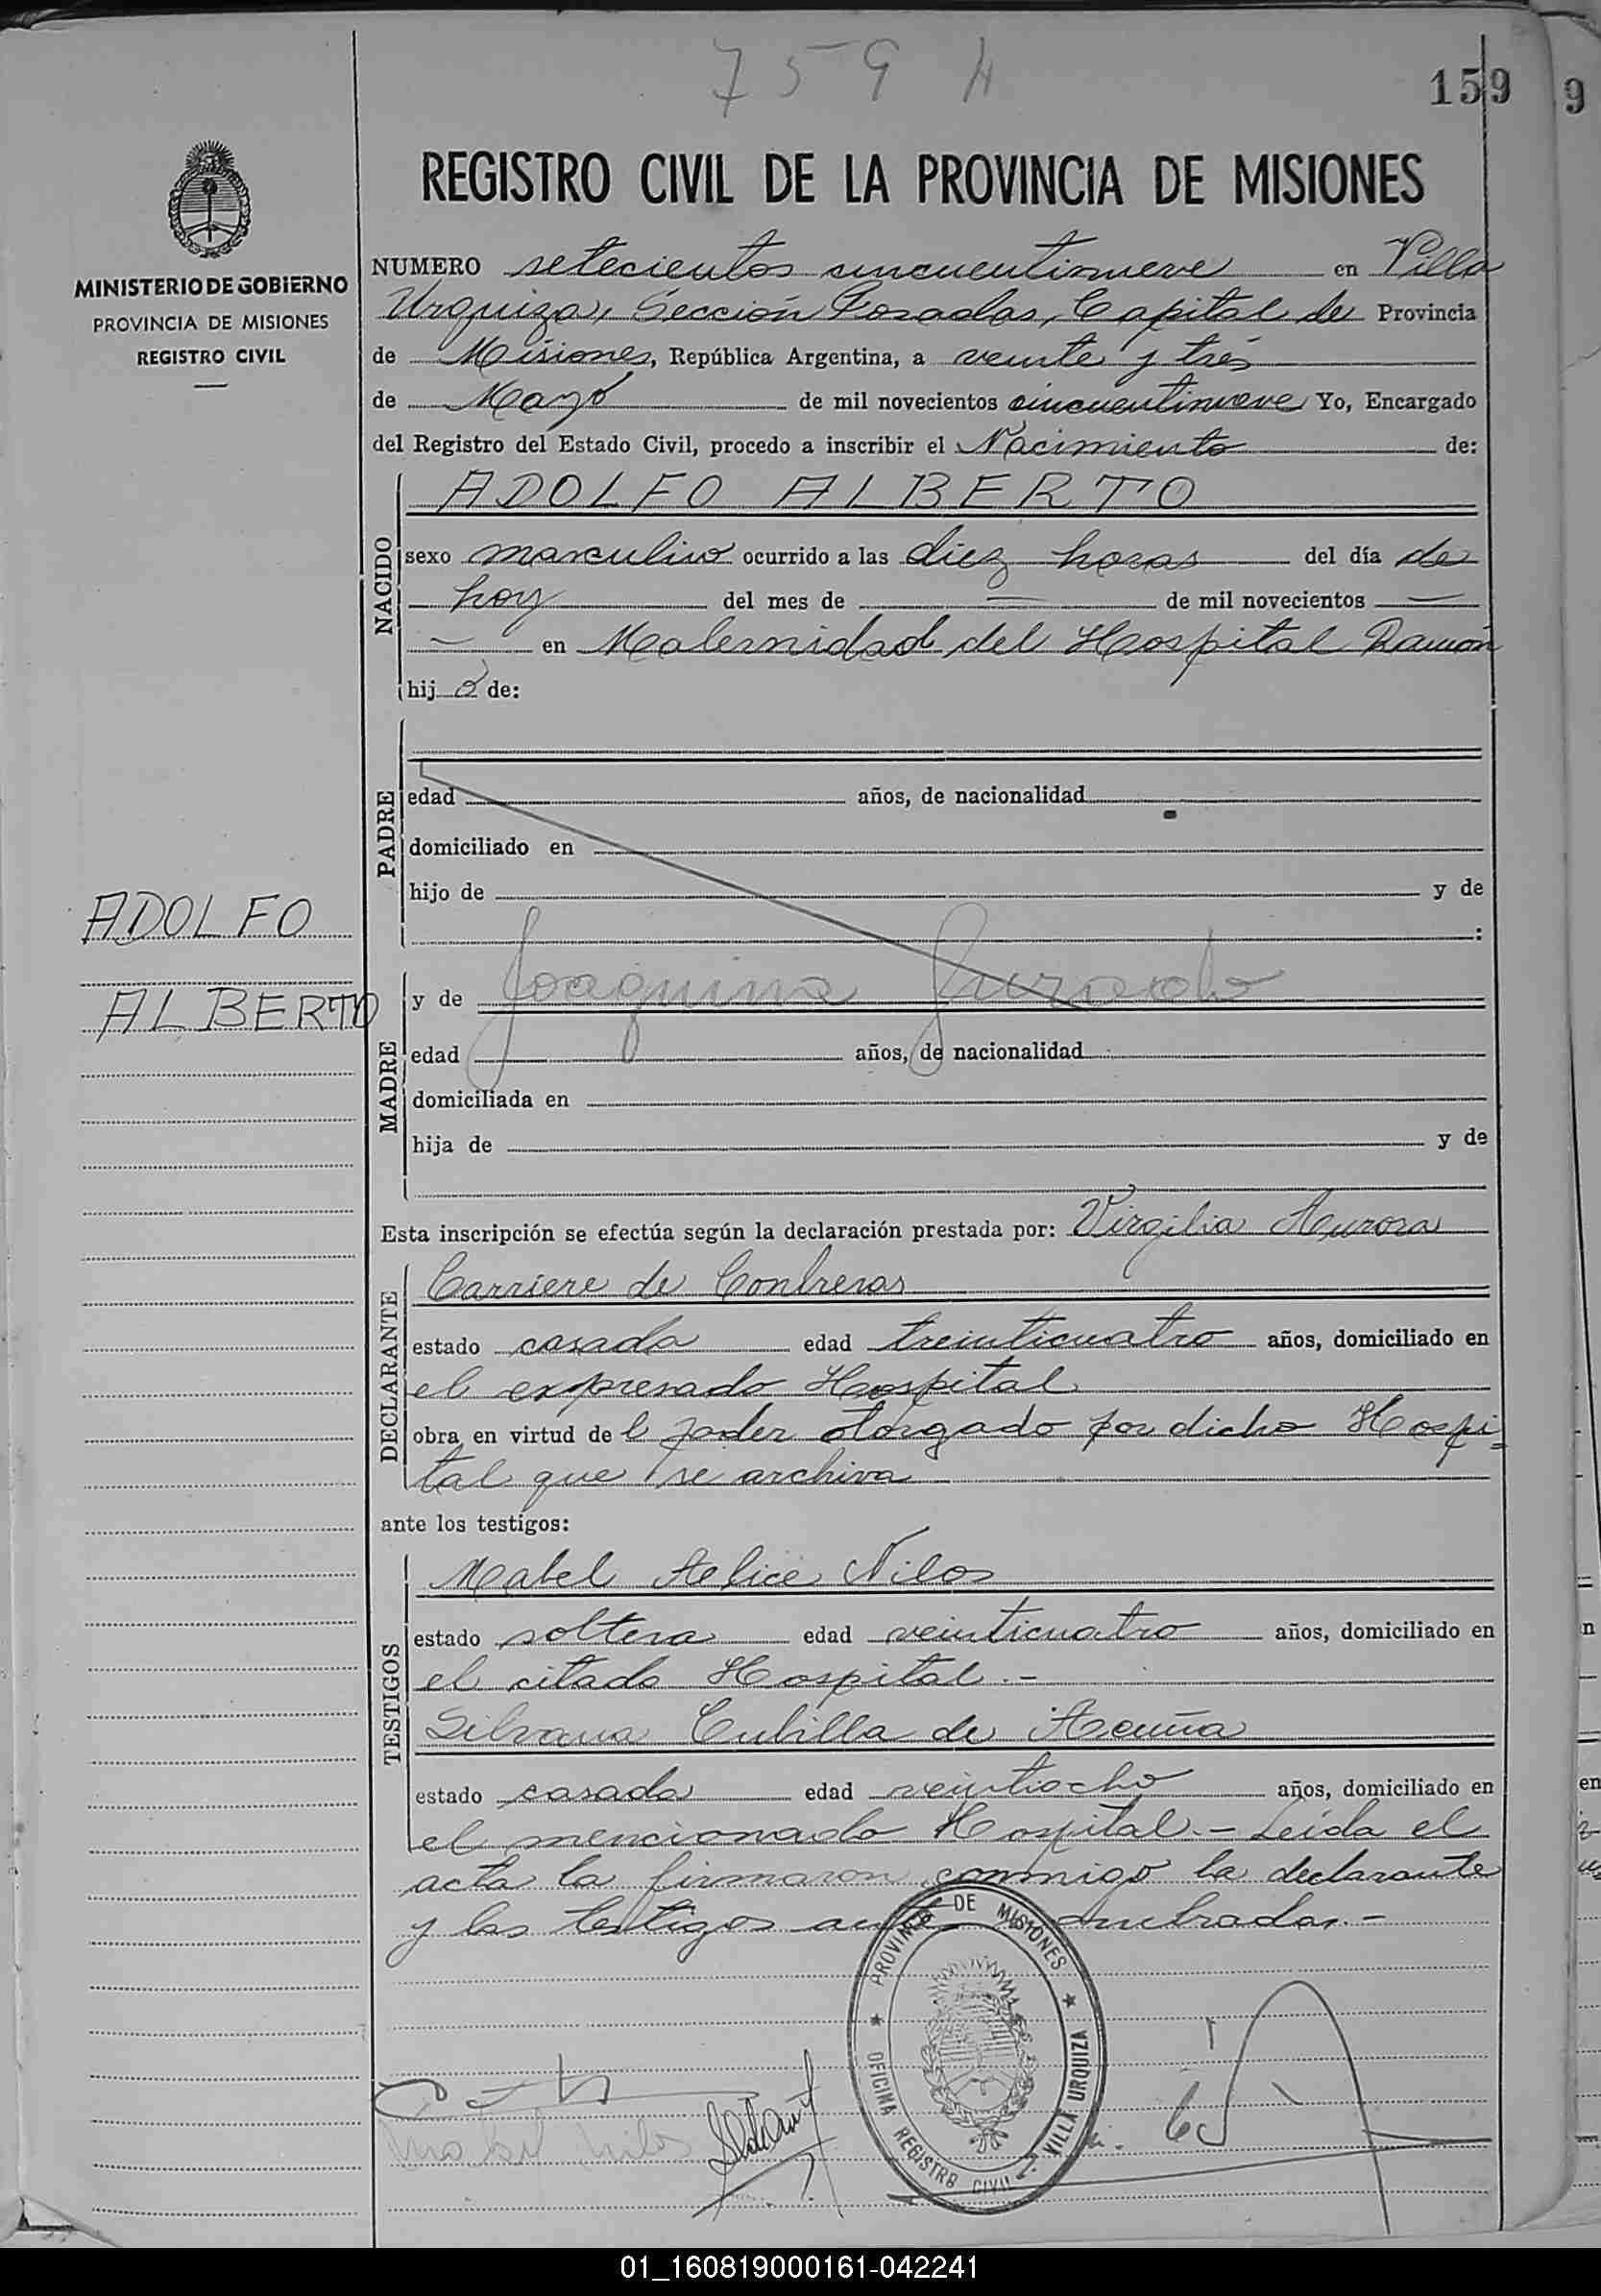 759 A
159
9
REGISTRO CIVIL DE LA PROVINCIA DE MISIONES
MINISTERIO DE GOBIERNO
PROVINCIA DE MISIONES
REGISTRO CIVIL
NUMERO setecientos cincuentinueve en Villa
Urquiza, Sección Posadas, Capital de Provincia
de Misiones, República Argentina, a veinte y tres
de Mayo de mil novecientos cincuentinueve Yo, Encargado
del Registro del Estado Civil, procedo a inscribir el Nacimiento de:
NACIDO
ADOLFO ALBERTO
sexo masculino ocurrido a las diez horas del día de
hoy del mes de — de mil novecientos —
— en Maternidad del Hospital Ramón
hijo de:
PADRE
edad años, de nacionalidad
domiciliado en
hijo de y de
:
ADOLFO
ALBERTO
MADRE
y de Joaquina Jurado
edad años, de nacionalidad
domiciliada en
hija de y de
Esta inscripción se efectúa según la declaración prestada por: Virgilia Aurora
DECLARANTE
Carriere de Contreras
estado casada edad treinticuatro años, domiciliado en
el expresado Hospital
obra en virtud del poder otorgado por dicho Hospi-
tal que se archiva
ante los testigos:
TESTIGOS
Mabel Nilos
estado soltera edad veinticuatro años, domiciliado en
el citado Hospital.-
Silvana Cubilla de Acuña
estado casada edad veintiocho años, domiciliado en
el mencionado Hospital.- Leída el
acta la firmaron conmigo la declarante
y los testigos
PROVINCIA DE MISIONES
OFICINA REGISTRO CIVIL VILLA URQUIZA
Mabel Nilos
01_160819000161-042241